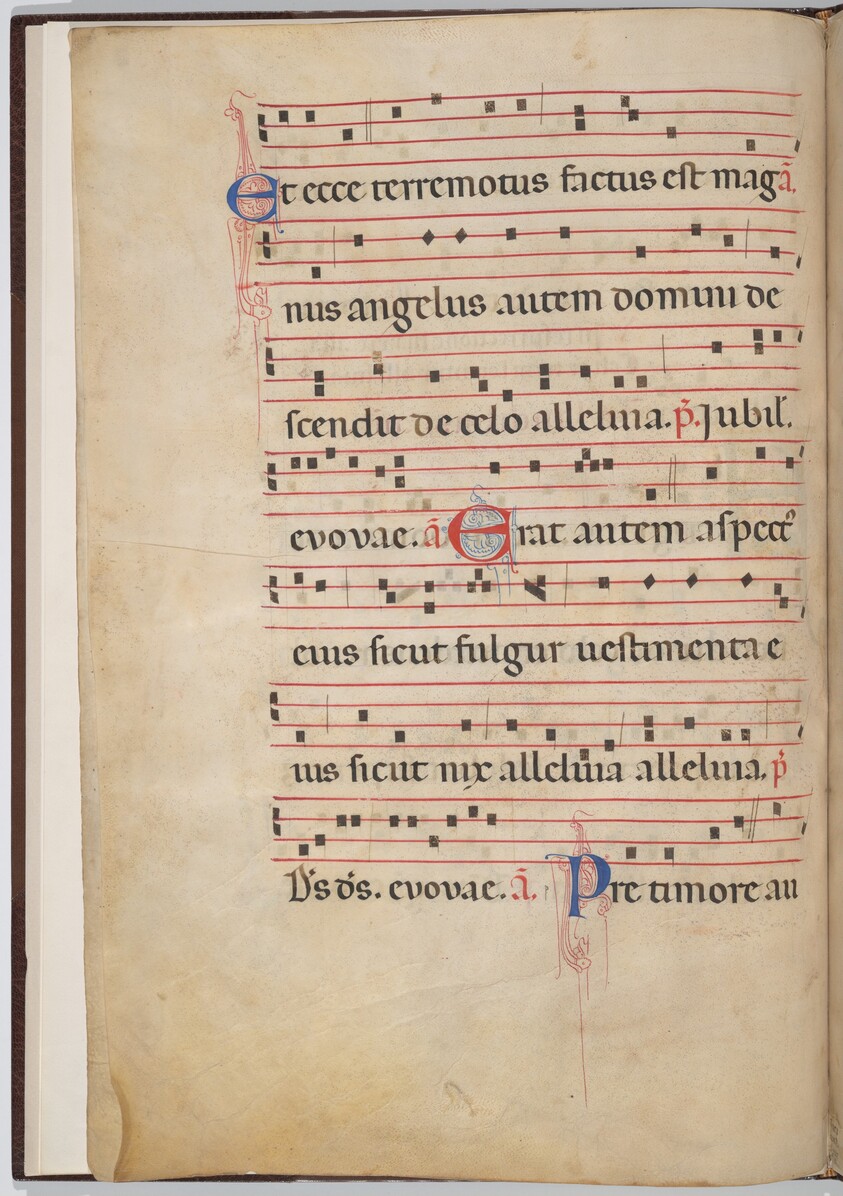 Et ecce terremotus factus est mag ā.
nus angelus autem domini de
scendit de celo alleluia. p̄. Jubil̄.
evovae. ā Erat autem aspectꝰ
eius sicut fulgur uestimenta e
ius sicut nix alleluia alleluia. p̄
D̄s d̄s. evovae. ā. Pre timore au